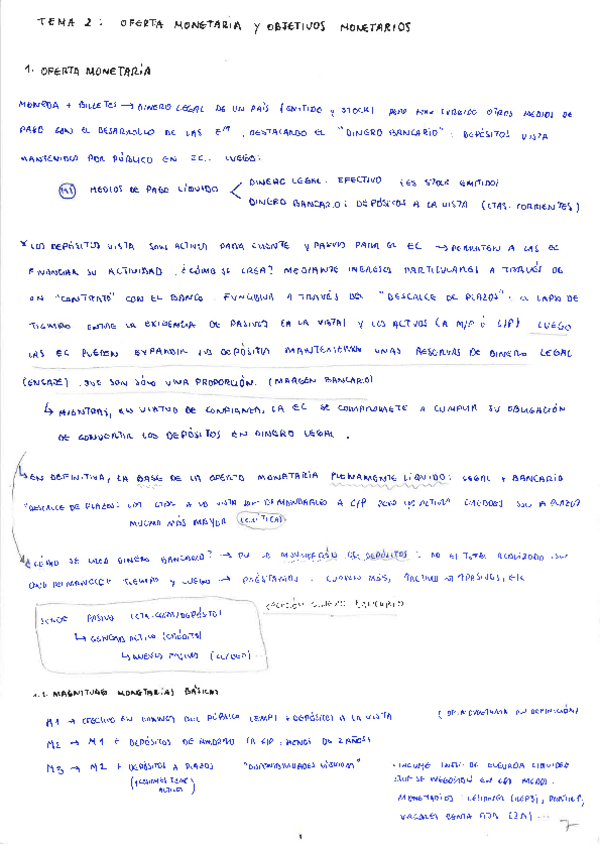 TEMA 2: OFERTA MONETARIA Y OBJETIVOS MONETARIOS
1. OFERTA MONETARIA
MONEDA + BILLETES → DINERO LEGAL DE UN PAÍS (EMITIDO y STOCK) PERO HAN SURGIDO OTROS MEDIOS DE
PAGO CON EL DESARROLLO DE LAS , DESTACANDO EL "DINERO BANCARIO": DEPÓSITOS VISTA
MANTENIDOS POR PÚBLICO EN EC.. LUEGO:
MEDIOS DE PAGO LÍQUIDO
DINERO LEGAL. EFECTIVO (ES STOCK EMITIDO)
DINERO BANCARIO: DEPÓSITOS A LA VISTA (CTAS. CORRIENTES)
* LOS DEPÓSITOS VISTA SON ACTIVO PARA CLIENTE Y PASIVO PARA EC → PERMITEN A LAS EC
FINANCIAR SU ACTIVIDAD. ¿CÓMO SE CREA? MEDIANTE INGRESOS PARTICULARES A TRAVÉS DE
UN "CONTRATO" CON EL BANCO. FUNCIONA A TRAVÉS DEL "DESCALCE DE PLAZOS": EL LAPSO DE
TIEMPO ENTRE LA EXIGENCIA DE PASIVOS (A LA VISTA) Y LOS ACTIVOS (A M/P Ó L/P) LUEGO
LAS EC PUEDEN EXPANDIR SUS DEPÓSITOS MANTENIENDO UNAS RESERVAS DE DINERO LEGAL
(ENCAJE) QUE SON SÓLO UNA PROPORCIÓN. (MARGEN BANCARIO)
↳ MIENTRAS, EN VIRTUD DE CONFIANZA, LA EC SE COMPROMETE A CUMPLIR SU OBLIGACIÓN
DE CONVERTIR LOS DEPÓSITOS EN DINERO LEGAL.
↳ EN DEFINITIVA, LA BASE DE LA OFERTA MONETARIA PLENAMENTE LÍQUIDO: LEGAL + BANCARIO
"DESCALCE DE PLAZOS: LAS CTAS A LA VISTA SON DEMANDABLES A C/P PERO LOS ACTIVOS (CRÉDITOS) SON A PLAZO
MUCHO MÁS MAYOR
¿CÓMO SE CREA DINERO BANCARIO? → DE LA DEPÓSITOS: NO EL TOTAL REALIZADO
TIEMPO Y LUEGO → PRÉSTAMOS. CUANTO MÁS, ↑ACTIVO → ↑PASIVOS, ETC
CREACIÓN DINERO BANCARIO
PASIVO (CTA. CORR/DEPÓSITO)
↳ GENERAR ACTIVO (CRÉDITO)
↳ NUEVOS PASIVOS
1.1. MAGNITUDES MONETARIAS BÁSICAS
M1 → EFECTIVO EN MANOS DEL PÚBLICO (EMP) + DEPÓSITO A LA VISTA
(OFERTA MONETARIA EN DEFINICIÓN)
M2 → M1 + DEPÓSITOS DE AHORRO (A C/P: MENOS DE 2 AÑOS)
M3 → M2 + DEPÓSITOS A PLAZOS "DISPONIBILIDADES LÍQUIDAS"
ACTIVOS)
· INCLUYE INST. DE ELEVADA LIQUIDEZ
QUE SE NEGOCIAN EN LOS MERC.
MONETARIOS: CESIONES (REPOS),
VALORES RENTA FIJA (2A) ...